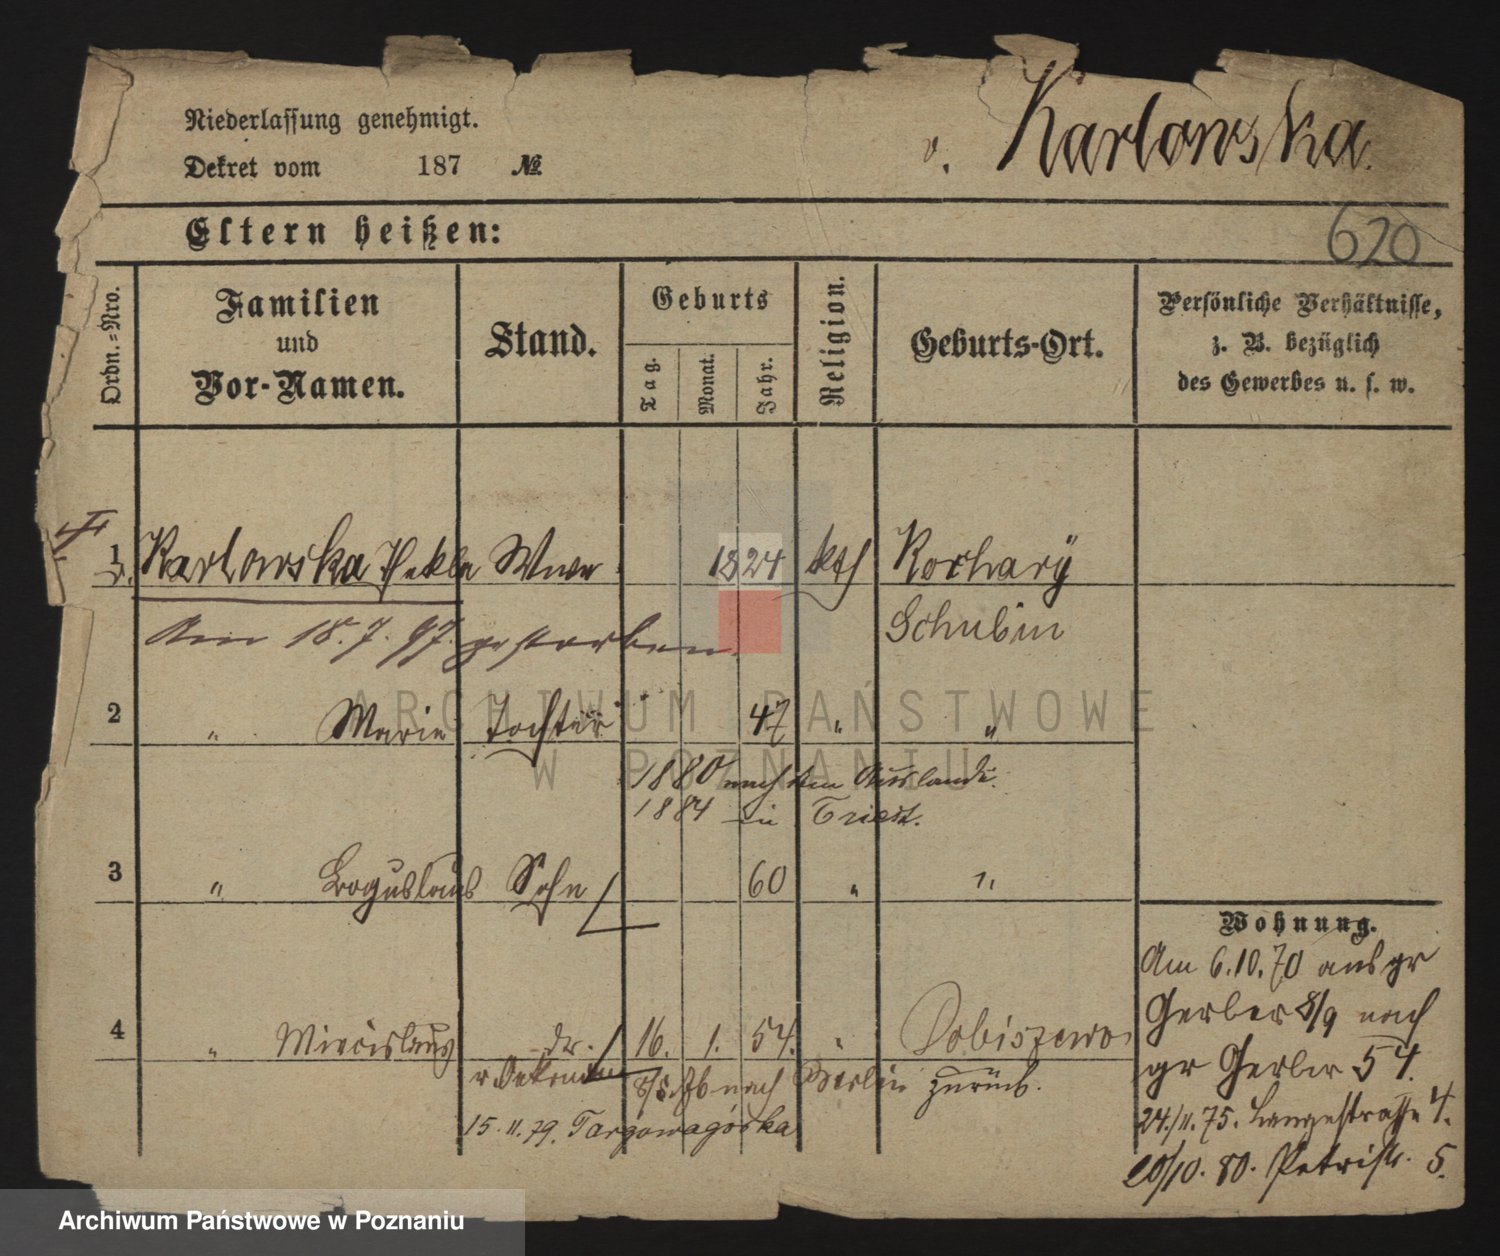 Niederlassung genehmigt.
Dekret vom 187 №
v. Karlowska.
Eltern heißen:
620
Ordn.-Nro.
Familien
und
Vor-Namen.
Stand.
Geburts
Tag.
Monat.
Jahr.
Religion.
Geburts-Ort.
Persönliche Verhältnisse,
z. B. bezüglich
des Gewerbes u. s. w.
1 v. Karlowska Thekla Wwe 1824 kth
Schubin
Am 18.7.97. gestorben.
2 " Marie Tochter 47 " "
1880 nach dem Auslande.
1884 in Triest.
3 " Boguslaus Sohn 60 " "
4 " Miecislaus 16. 1. 54. " Dobiszewo
nach Berlin zurück.
15.11.79. Targowagórka
Wohnung.
Am 6.10.70 aus gr
Gerber 8/9 nach
gr Gerber 54.
24./11.75. Langestrasse 4.
20/10.80. Petristr. 5.
ARCHIWUM PAŃSTWOWE
W POZNANIU
Archiwum Państwowe w Poznaniu